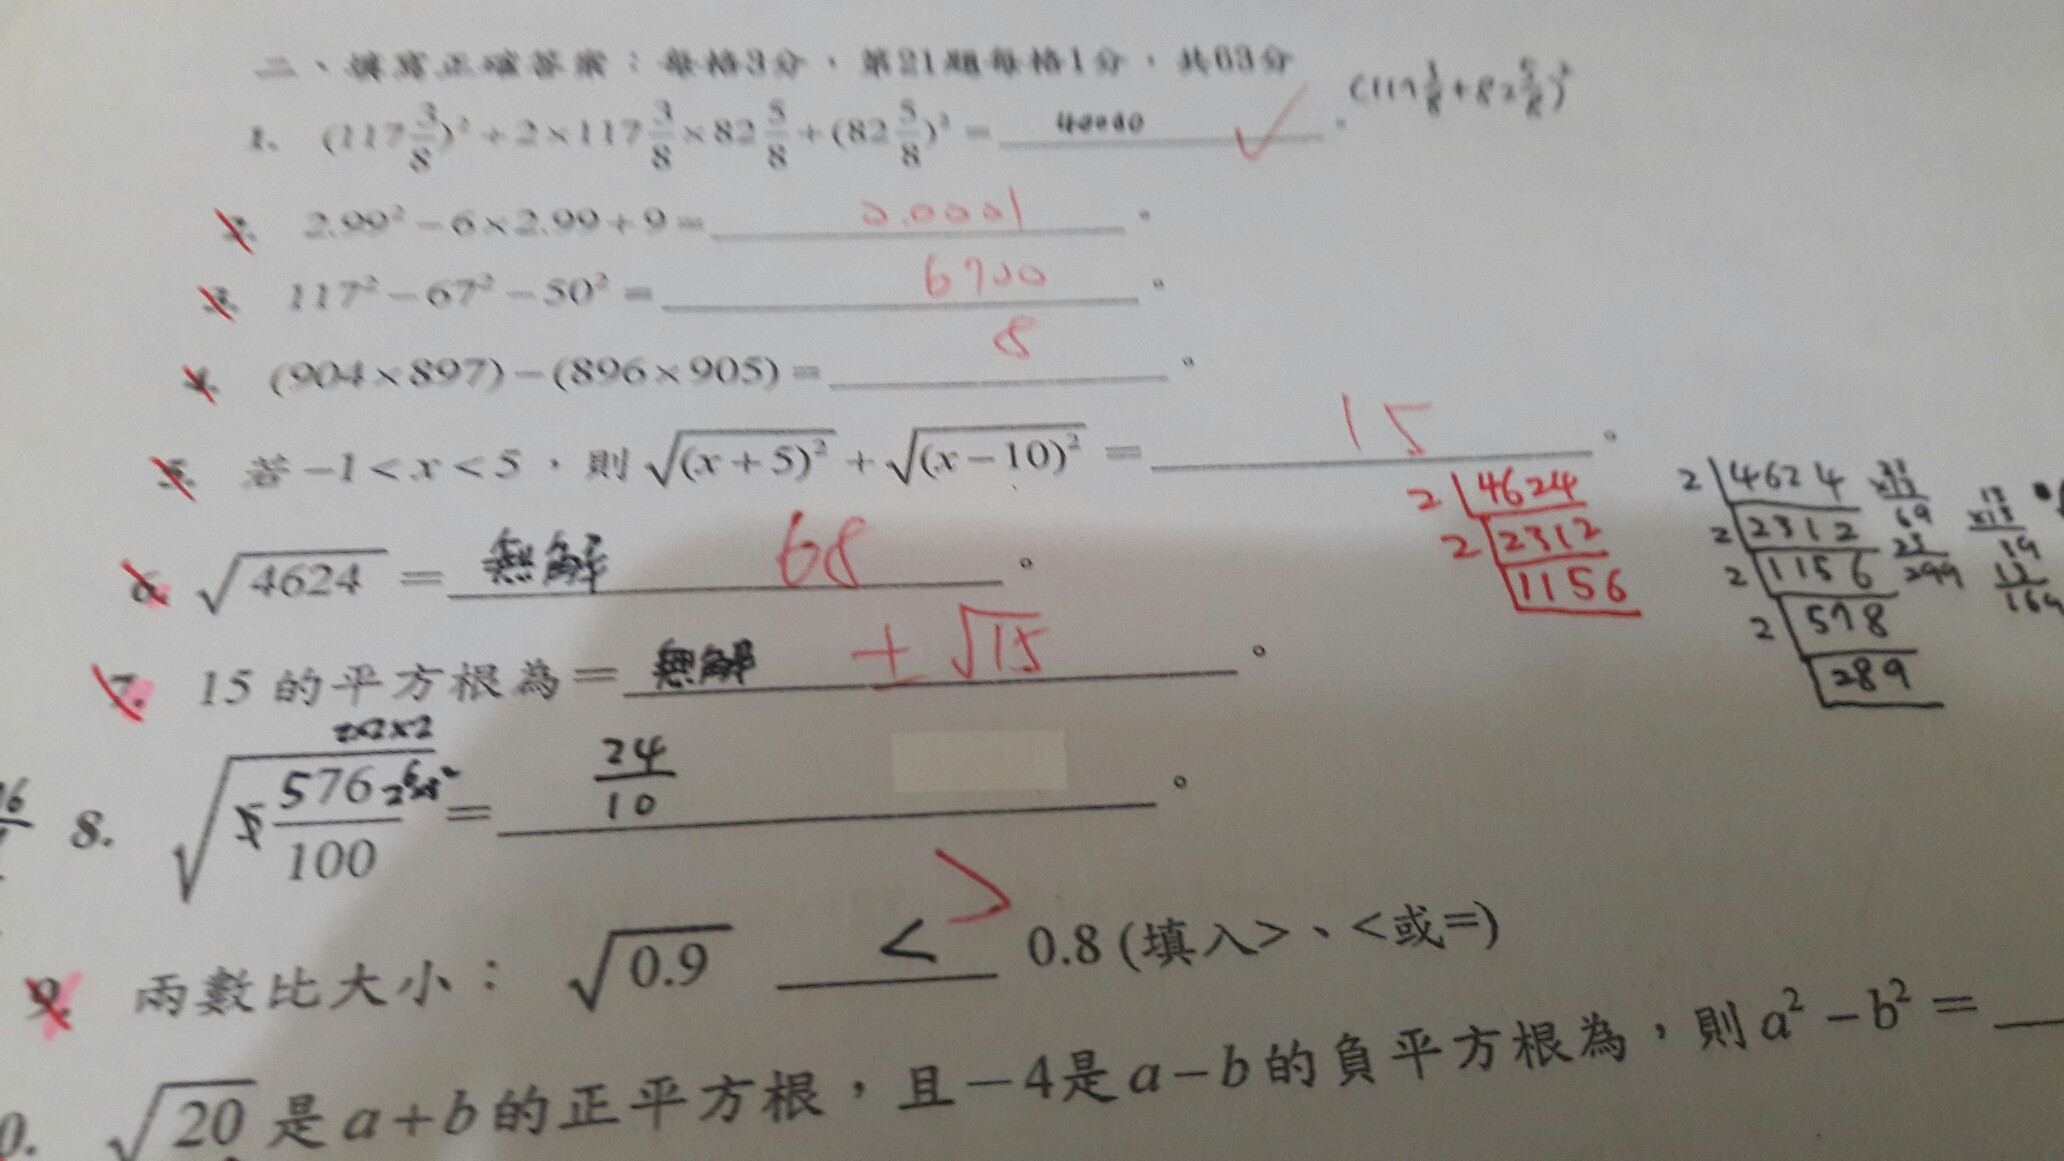 二、填寫正確答案：每格3分，第21題每格1分，共63分
1. (117 3/8)² + 2×117 3/8×82 5/8+(82 5/8)² = 40000 ✓ 。 (117 3/8+82 5/8)²
2. 2.99²－6×2.99+9= 0.0001 。
3. 117²－67²－50² = 6700 。
4. (904×897)－(896×905)= 8 。
5. 若－1<x<5，則√(x+5)² + √(x－10)² = 15 。
6. √4624 = 無解 68 。
2 4624
2 2312
1156
2 4624
2 2312
2 1156
2 578
289
23
×13
69
23
299
13
×13
39
13
169
7. 15的平方根為= 無解 ±√15 。
2×2×2
8. √576/100 = 24/10 。
9. 兩數比大小：√0.9 < > 0.8 (填入>、<或=)
0. √20是a+b的正平方根，且－4是a－b的負平方根為，則a²－b² =